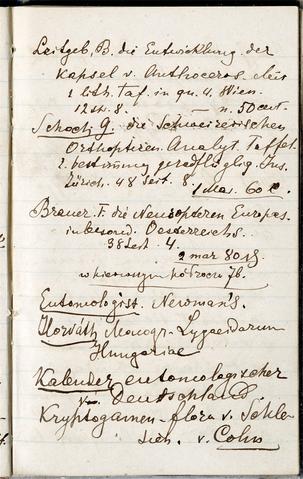 Leitgeb, B. die Entwicklung der
Kapsel v. Anthoceros. Mit
1 lith. Taf. in qu. 4. Wien.
12 st. 8. — n. 50 cent.
Schoch G. die Schweizerischen
Orthopteren. Analyt. Taffel
z. bestimmung geradflüglig. Ins.
Zürich. 48 Seit. 8.
1 Mar. 60
Brauer. F. die Neuropteren Europas
in besond. Oesterreichs.
38 Seit. 4.
2 mar 80
Entomologist. Newman's.
Horváth Monogr. Lygaeidarum
Hungariae
Kalender entomologischer
v. Deutschland.
Kryptogamen-flora v. Schle
sich. v. Cohn